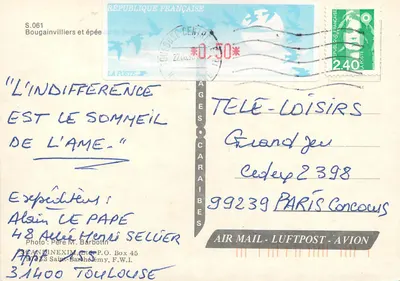 S.061
Bougainvilliers et épée
RÉPUBLIQUE FRANÇAISE
*0,50*
LA POSTE
2,40
"L'INDIFFERENCE
EST LE SOMMEIL
DE L'AME-"
Expéditeur:
Alain LE PAPE
48 Allée Henri SELLIER
Appt 155
31400 TOULOUSE
Photo: Père M. Barbotin
P.O. Box 45
Saint Barthélemy, F.W.I.
IMAGES CARAIBES
TELE-LOISIRS
Grand Jeu
Cedex 2398
99239 PARIS Concours
AIR MAIL - LUFTPOST - AVION